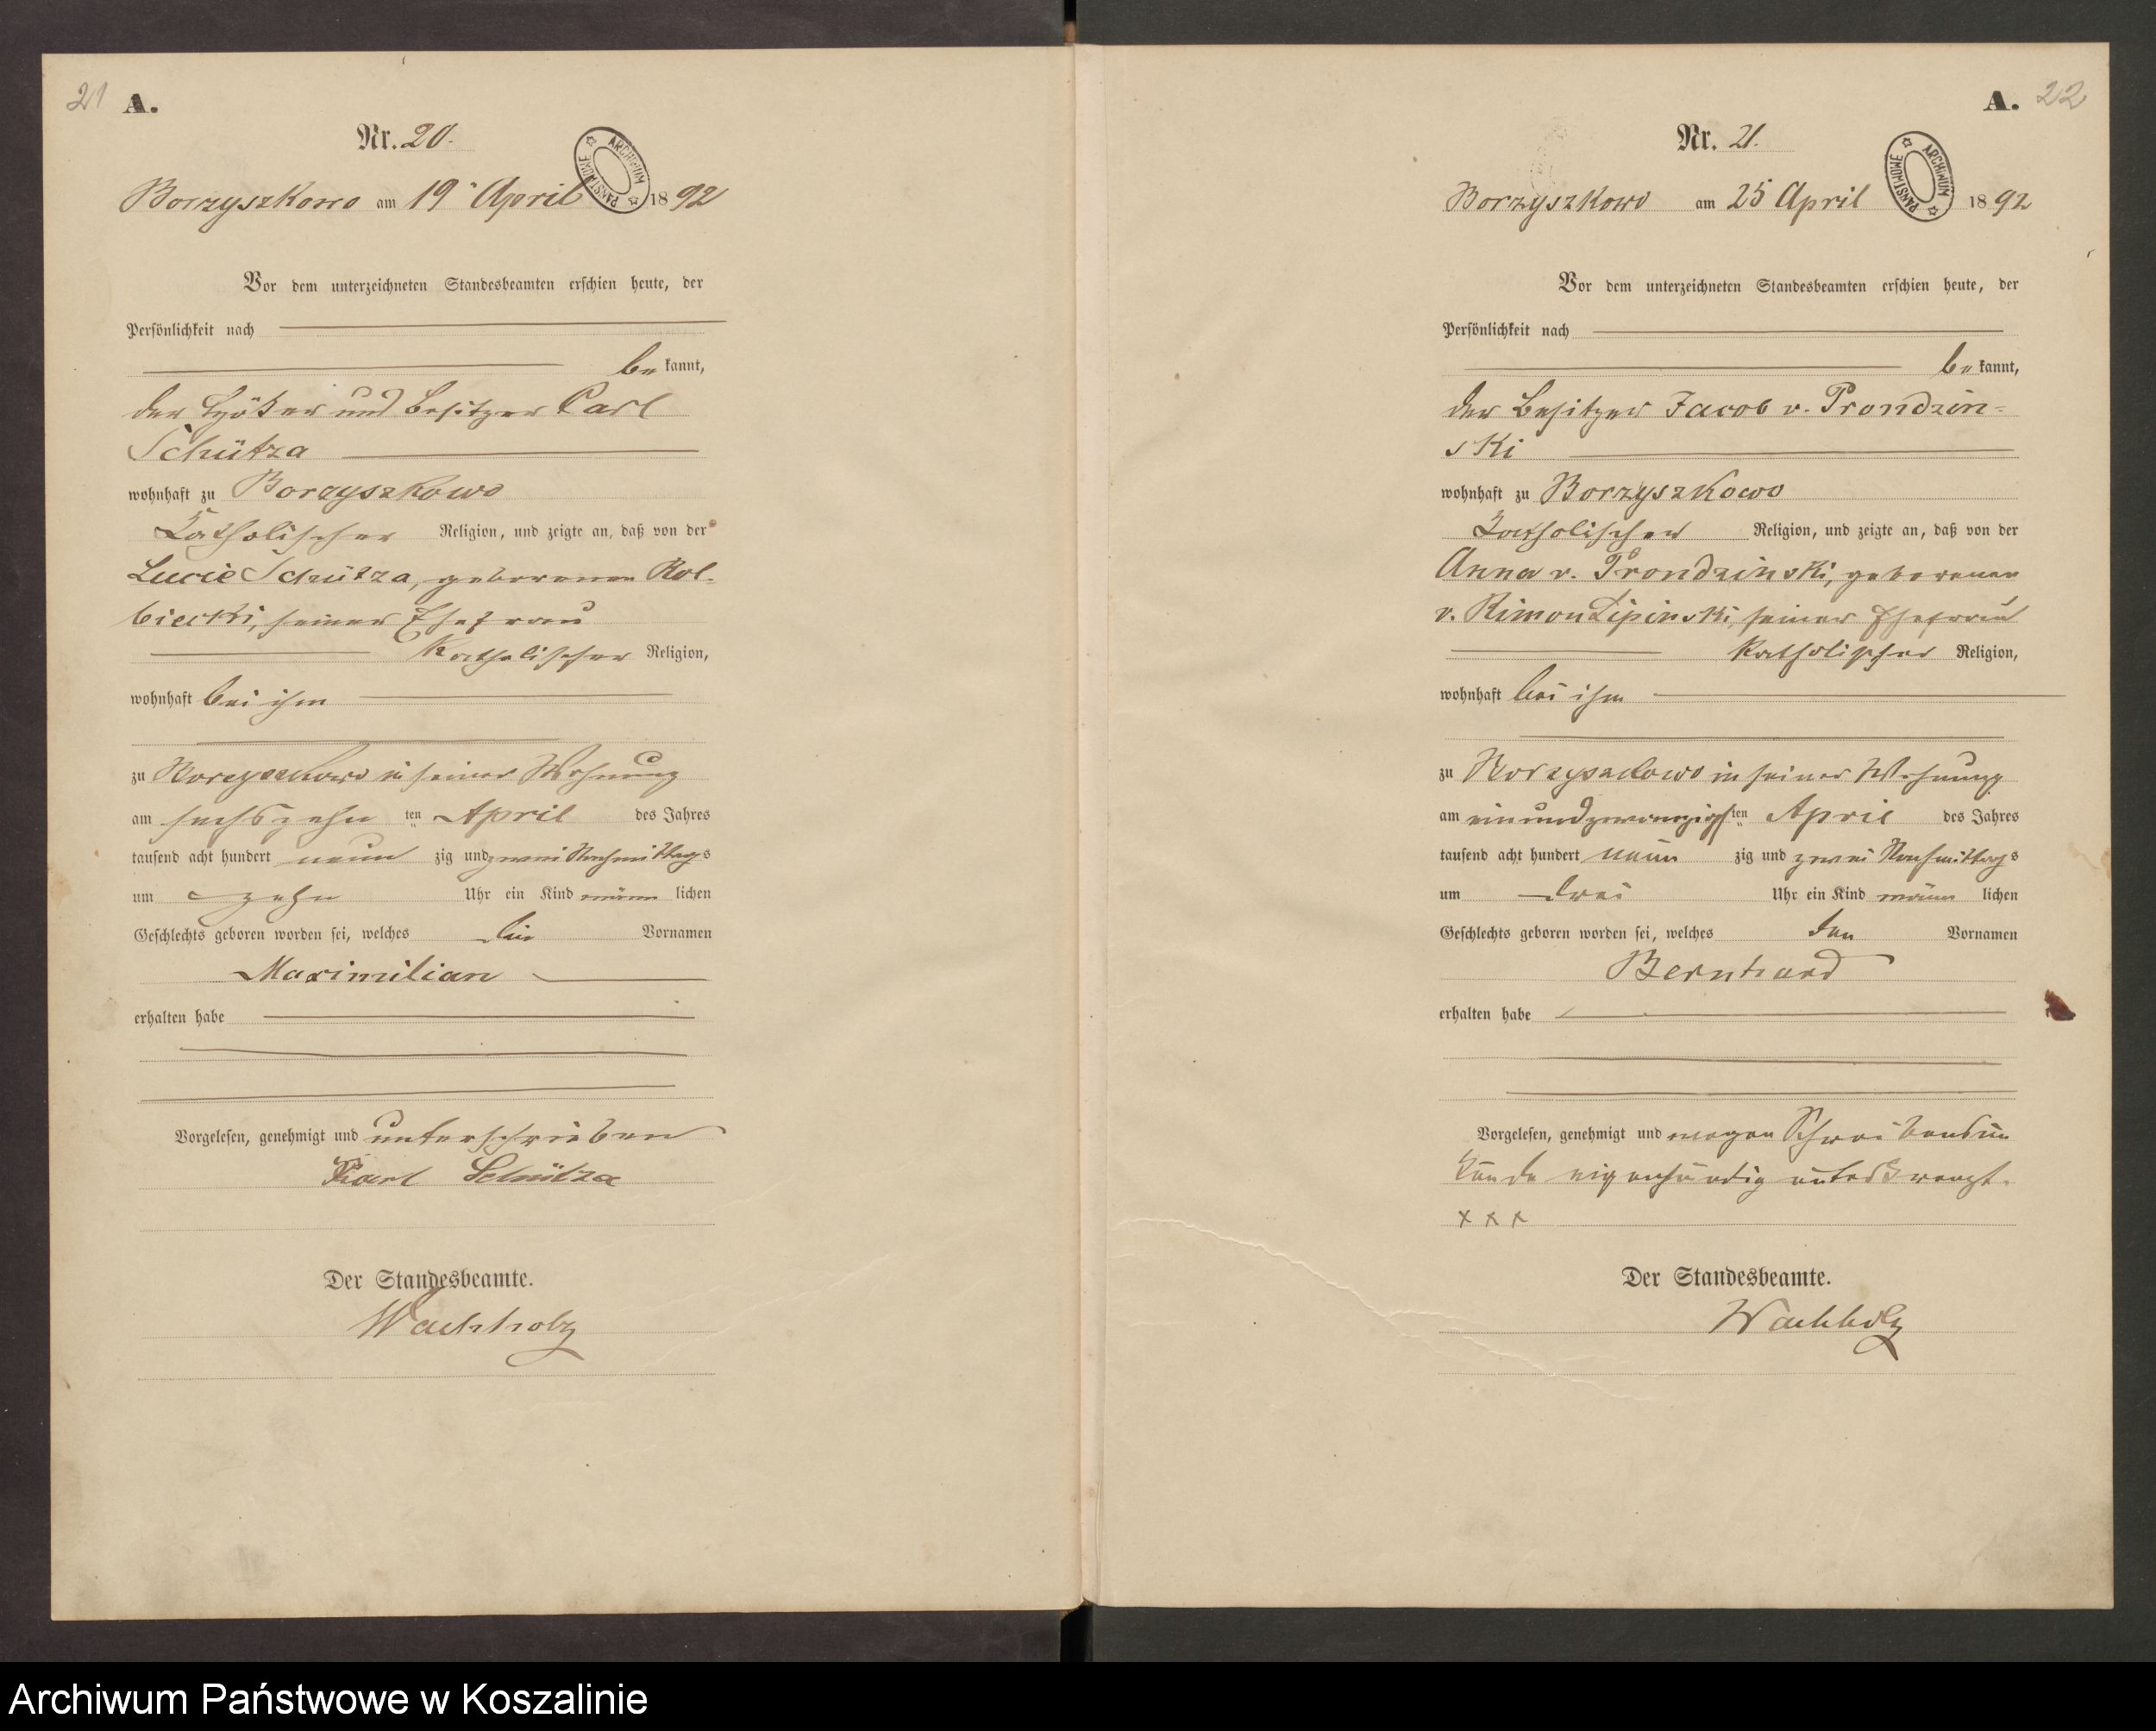 21 A.
Nr. 20.
ARCHIWUM PAŃSTWOWE
Borzyszkowo am 19 April 1892
Vor dem unterzeichneten Standesbeamten erschien heute, der
Persönlichkeit nach
be kannt,
der Höker und Besitzer Carl
Schütza
wohnhaft zu Borzyszkowo
Katholischer Religion, und zeigte an, daß von der
Lucie Schütza, geborenen Kol-
biecki, seiner Ehefrau
Katholischer Religion,
wohnhaft bei ihm
zu Borzyszkowo in seiner Wohnung
am sechszehn ten April des Jahres
tausend acht hundert neun zig und zwei Nachmittags
um zehn Uhr ein Kind männ lichen
Geschlechts geboren worden sei, welches die Vornamen
Maximilian
erhalten habe
Vorgelesen, genehmigt und unterschrieben
Karl Schütza
Der Standesbeamte.
Wachholz
A. 22
Nr. 21.
ARCHIWUM PAŃSTWOWE
Borzyszkowo am 25 April 1892
Vor dem unterzeichneten Standesbeamten erschien heute, der
Persönlichkeit nach
be kannt,
der Besitzer Jacob v. Prondzin-
ski
wohnhaft zu Borzyszkowo
Katholischer Religion, und zeigte an, daß von der
Anna v. Prondzinski, geborenen
v. Rimon Lipinski, seiner Ehefrau
Katholischer Religion,
wohnhaft bei ihm
zu Borzyszkowo in seiner Wohnung
am einundzwanzigs ten April des Jahres
tausend acht hundert neun zig und zwei Nachmittags
um drei Uhr ein Kind männ lichen
Geschlechts geboren worden sei, welches den Vornamen
Bernhard
erhalten habe
Vorgelesen, genehmigt und wegen Schreibensun
kunde eigenhändig unterkreuzt.
x x x
Der Standesbeamte.
Wachholz
Archiwum Państwowe w Koszalinie